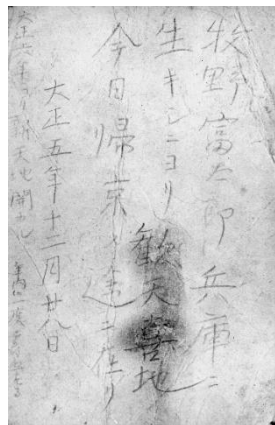 牧野富太郎兵庫ニ
生キシニヨリ歓天喜地
今日帰京ノ途ニ在リ
大正五年十二月廿八日
大正六年ヨリ新天地開カル